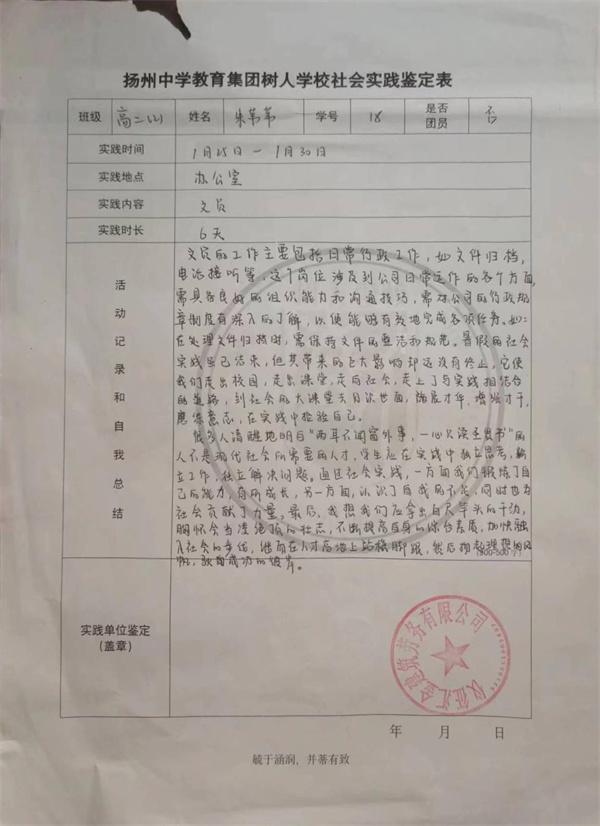 扬州中学教育集团树人学校社会实践鉴定表
班级 高二(2) 姓名 朱苇苇 学号 18 是否团员 否
实践时间 1月25日一1月30日
实践地点 办公室
实践内容 文员
实践时长 6天
活动记录和自我总结
文员的工作主要包括日常行政工作,如文件归档,
电话接听等,这个岗位涉及到公司日常运作的各个方面,
需具备良好的组织能力和沟通技巧,需对公司的行政规
章制度有深入的了解,以便能够有效地完成各项任务。如:
在处理文件归档时,需保持文件的整洁和规范。暑假的社会
实践虽已结束,但其带来的巨大影响却远没有停止,它使
我们走出校园,走出课堂,走向社会,走上了与实践相结合
的道路,到社会的大课堂去见识世面,施展才华,增强才干,
磨练意志,在实践中检验自己。
很多人清醒地明白"两耳不闻窗外事,一心只读圣贤书"的
人不是现代社会所需要的人才,学生应在实践中独立思考,独
立工作,独立解决问题。通过社会实践,一方面我们锻炼了自
己的能力,有所成长,另一方面,认识了自我的不足,同时也为
社会贡献了力量。最后,我想我们应拿出百尺竿头的干劲,
胸怀会当凌绝顶的壮志,不断提高自身的综合素质,加快融
入社会的步伐,继而在人才高地上站稳脚跟,然后扬起理想的风
帆,驶向成功的彼岸。
(800-500字)
实践单位鉴定
(盖章)
仪征汇金建筑劳务有限公司
年 月 日
毓于涵润,并蒂有致